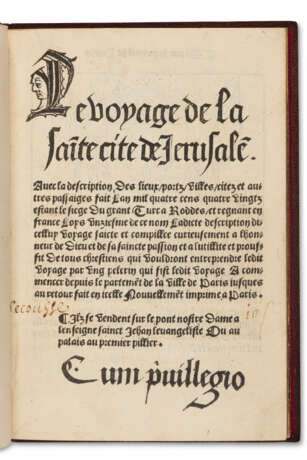 Le voyage de la
saĩte cite de Jerusalẽ.
Avec la description, Des lieux, portz, villes, citez et au
tres passaiges fait Lan mil quatre cens quatre vingtz
estant le siege Du grant Turc a Roddes, et regnant en
france Loys unziesme de ce nom Ladicte description di
celluy voyage faicte et compillee curieusement a lhon
neur de Dieu et de sa saincte passion et a lutillite et prouf
fit De tous chrestiens qui vouldront entreprendre ledit
voyage par Ung pelerin qui fist ledit voyage A com
mencer depuis le partemẽt de la ville de Paris iusques
au retour fait en icelle Nouvellement imprime a Paris.
Ilz se vendent sur le pont nostre Dame a
len seigne sainct Jehan leuangeliste Ou au
palais au premier pillier.
Cum puillegio